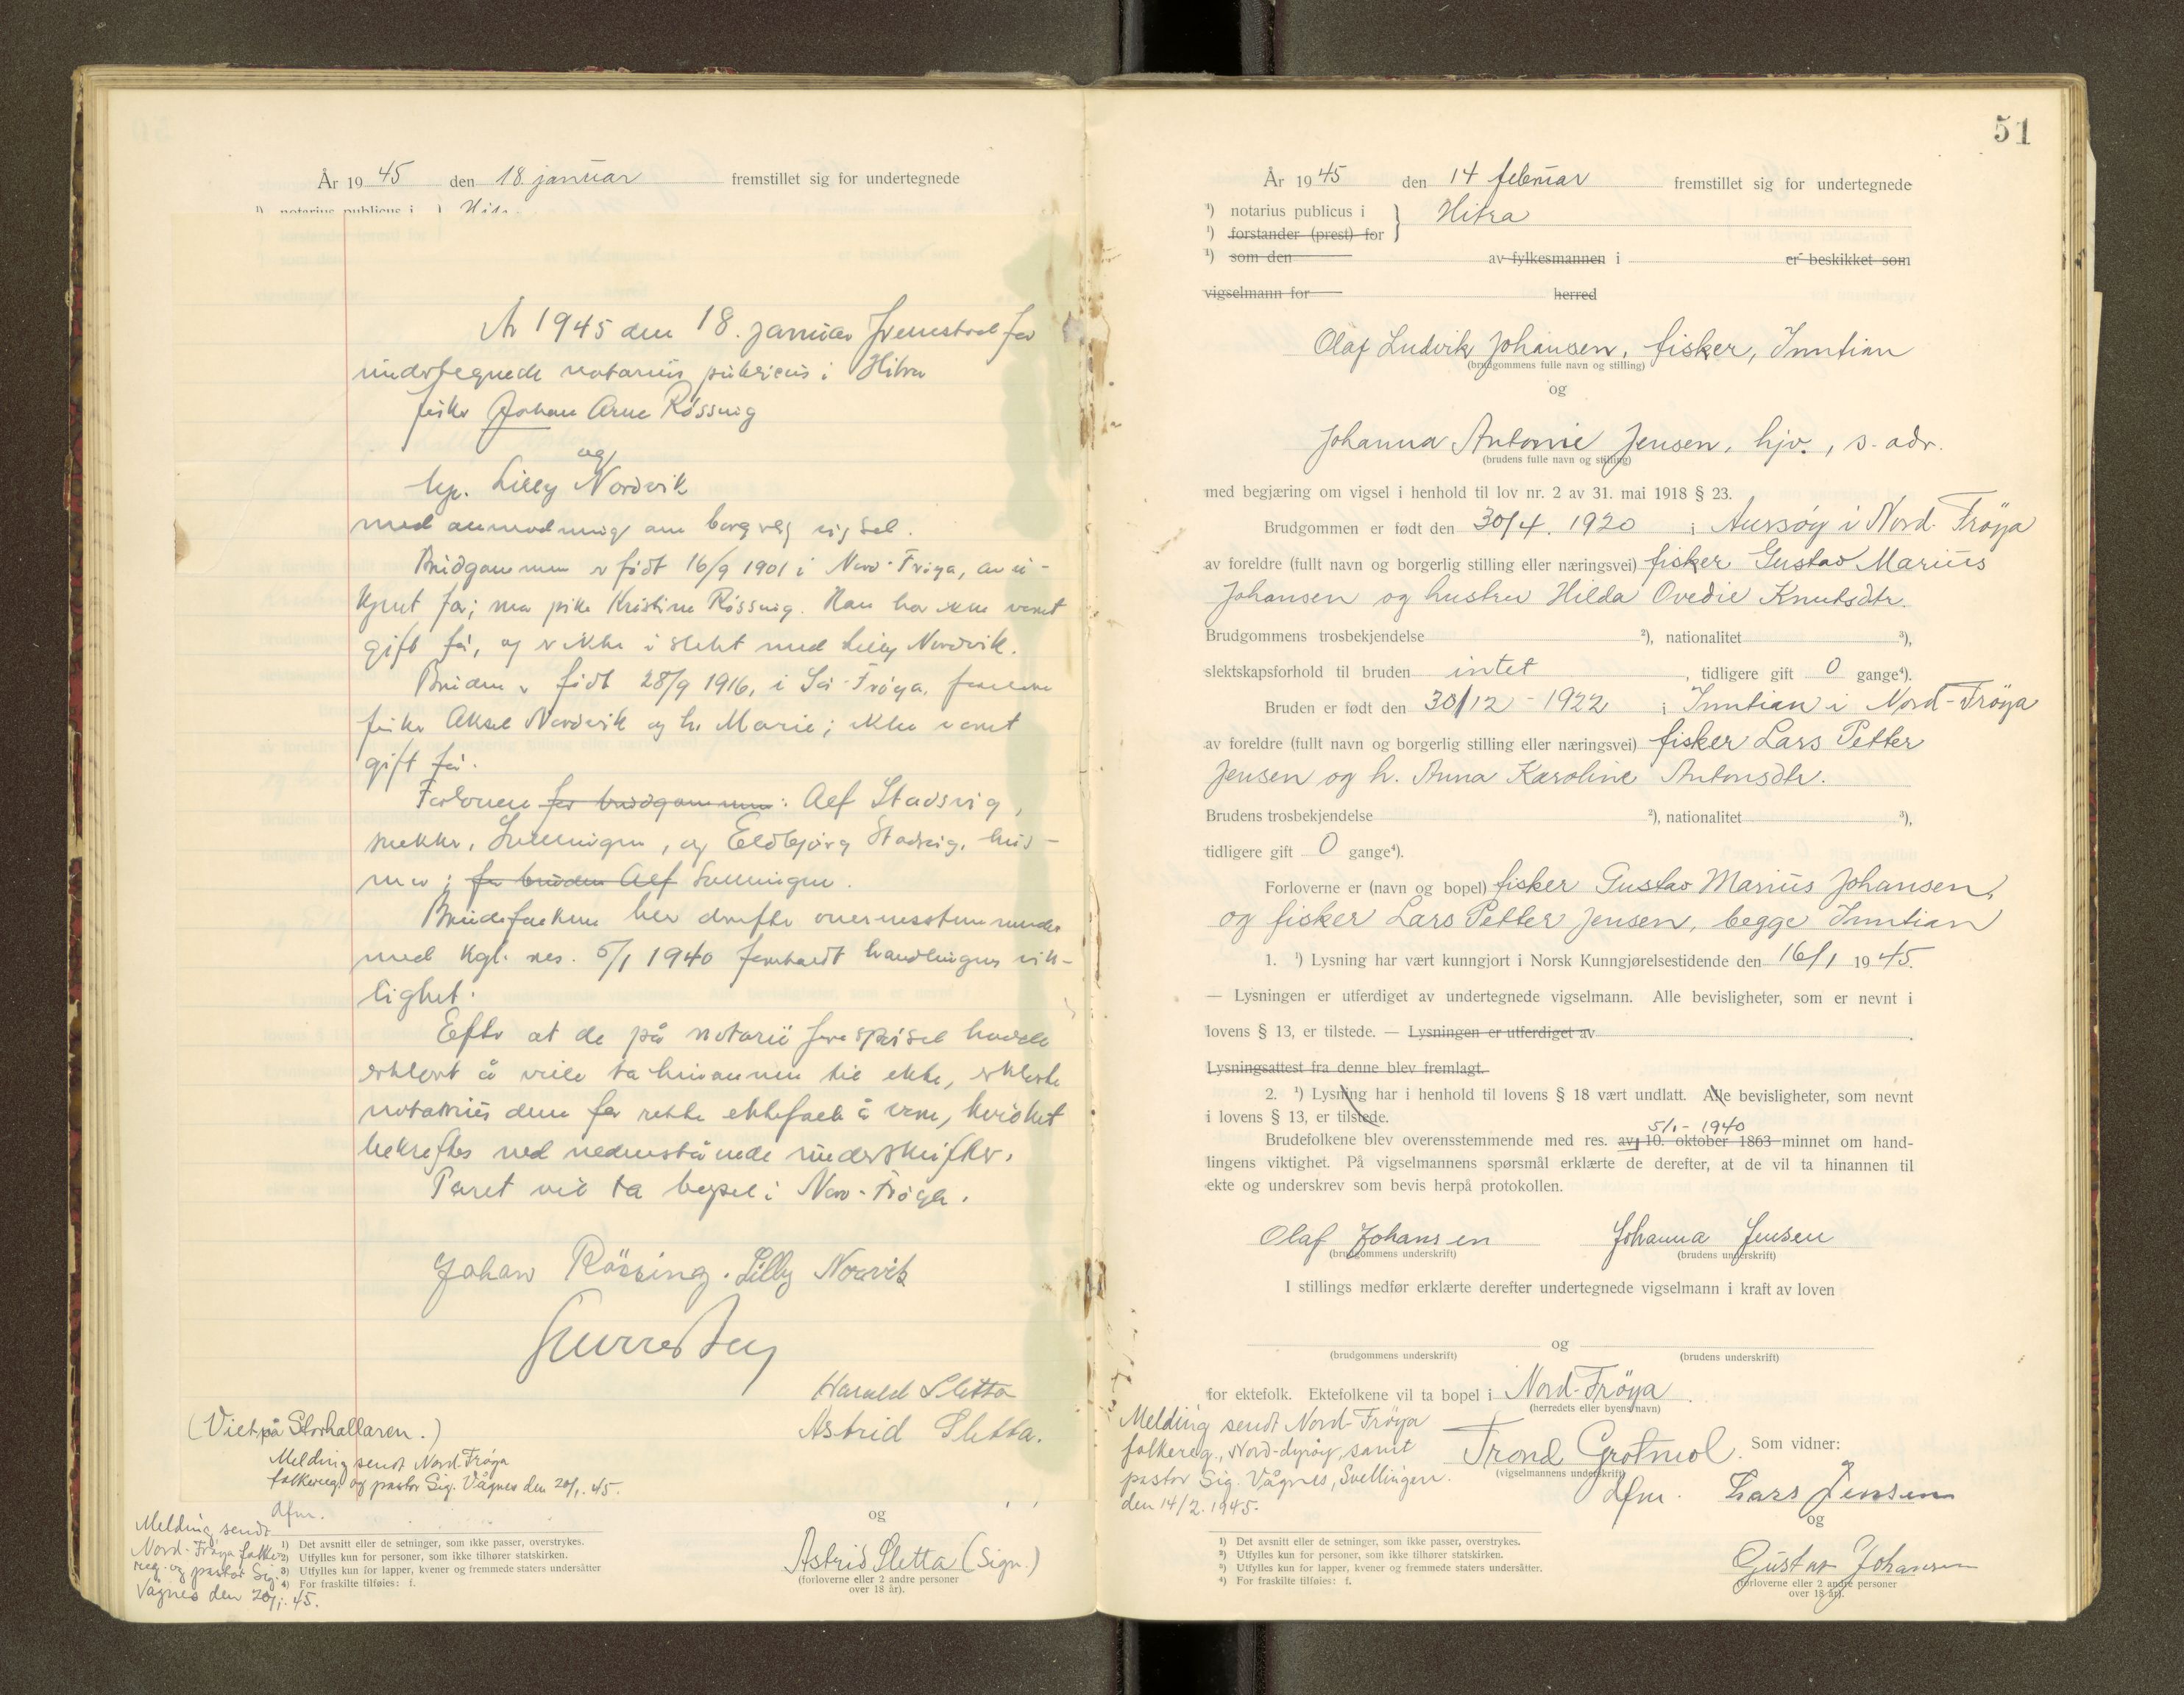 År 1945 den 18. januar fremstillet sig for undertegnede
År 1945 den 18. januar fremstod for
undertegnede notarius publicus i Hitra
fisker Johan Arne Røssvig
og
hp. Lilly Nordvik
med anmodning om borgerlig vigsel.
Brudgommen er født 16/9 1901 i Nord-Frøya, av u-
kjent far; mor pike Kristine Røssvig. Han har ikke vært
gift før, og er ikke i slekt med Lilly Nordvik.
Bruden er født 28/9 1916, i Sør-Frøya, foreldre
fisker Aksel Nordvik og h. Marie; ikke vært
gift før.
Forlovere for brudgommen: Alf Stadsvig,
snekker, Svellingen, og Eldbjørg Stadsvig, hus-
mor; for bruden Alf Svellingen.
Brudefolkene ble derefter overensstemmende
med kgl. res. 5/1 1940 foreholdt handlingens vik-
tighet.
Efter at de på notarii forespørsel hadde
erklært å ville ta hinannen til ekte, erklærte
notarius dem for rette ektefolk å være, hvilket
bekreftes ved nedenstående underskrifter.
Paret vil ta bopel i Nord-Frøya.
Johan Rössing. Lilly Norvik
Harald Sletta
Astrid Sletta.
(Viet på Storhallaren.)
Melding sendt Nord-Frøya
folkereg. og pastor Sig. Vågnes den 20/1. 45.
dfm.
Melding sendt
Nord-Frøya folke
reg. og pastor Sig.
Vågnes den 20/1. 45.
1) Det avsnitt eller de setninger, som ikke passer, overstrykes.
2) Utfylles kun for personer, som ikke tilhører statskirken.
3) Utfylles kun for lapper, kvener og fremmede staters undersåtter
4) For fraskilte tilføies: f.
og
Astrid Sletta (Sign.)
(forloverne eller 2 andre personer
over 18 år).
51
År 1945 den 14 februar fremstillet sig for undertegnede
1) notarius publicus i } Hitra
1) forstander (prest) for
1) som den av fylkesmannen i er beskikket som
vigselmann for herred
Olaf Ludvik Johansen, fisker, Inntian
(brudgommens fulle navn og stilling)
og
Johanna Antonie Jensen, hjv., s. adr.
(brudens fulle navn og stilling)
med begjæring om vigsel i henhold til lov nr. 2 av 31. mai 1918 § 23.
Brudgommen er født den 30/4. 1920 i Aursøy i Nord-Frøya
av foreldre (fullt navn og borgerlig stilling eller næringsvei) fisker Gustav Marius
Johansen og hustru Hilda Ovedie Knutsdtr.
Brudgommens trosbekjendelse 2), nationalitet 3),
slektskapsforhold til bruden intet, tidligere gift 0 gange4).
Bruden er født den 30/12 - 1922 i Inntian i Nord-Frøya
av foreldre (fullt navn og borgerlig stilling eller næringsvei) fisker Lars Petter
Jensen og h. Anna Karoline Antonsdtr.
Brudens trosbekjendelse 2), nationalitet 3),
tidligere gift 0 gange4).
Forloverne er (navn og bopel) fisker Gustav Marius Johansen,
og fisker Lars Petter Jensen, begge Inntian
1. 1) Lysning har vært kunngjort i Norsk Kunngjørelsestidende den 16/1 1945.
— Lysningen er utferdiget av undertegnede vigselmann. Alle bevisligheter, som er nevnt i
lovens § 13, er tilstede. — Lysningen er utferdiget av
Lysningsattest fra denne blev fremlagt.
2. 1) Lysning har i henhold til lovens § 18 vært undlatt. Alle bevisligheter, som nevnt
i lovens § 13, er tilstede.
5/1 - 1940
Brudefolkene blev overensstemmende med res. av 10. oktober 1863 minnet om hand-
lingens viktighet. På vigselmannens spørsmål erklærte de derefter, at de vil ta hinannen til
ekte og underskrev som bevis herpå protokollen.
Olaf Johansen Johanna Jensen
(brudgommens underskrift) (brudens underskrift)
I stillings medfør erklærte derefter undertegnede vigselmann i kraft av loven
og
(brudgommens underskrift) (brudens underskrift)
for ektefolk. Ektefolkene vil ta bopel i Nord-Frøya.
(herredets eller byens navn)
Melding sendt Nord-Frøya
folkereg., Nord-dyrøy, samt
pastor Sig. Vågnes, Svellingen.
den 14/2. 1945.
Trond Grotmol Som vidner:
(vigselmannens underskrift)
dfm. Lars Jensen
og
Gustav Johansen
(forloverne eller 2 andre personer
over 18 år).
1) Det avsnitt eller de setninger, som ikke passer, overstrykes.
2) Utfylles kun for personer, som ikke tilhører statskirken.
3) Utfylles kun for lapper, kvener og fremmede staters undersåtter.
4) For fraskilte tilføies: f.